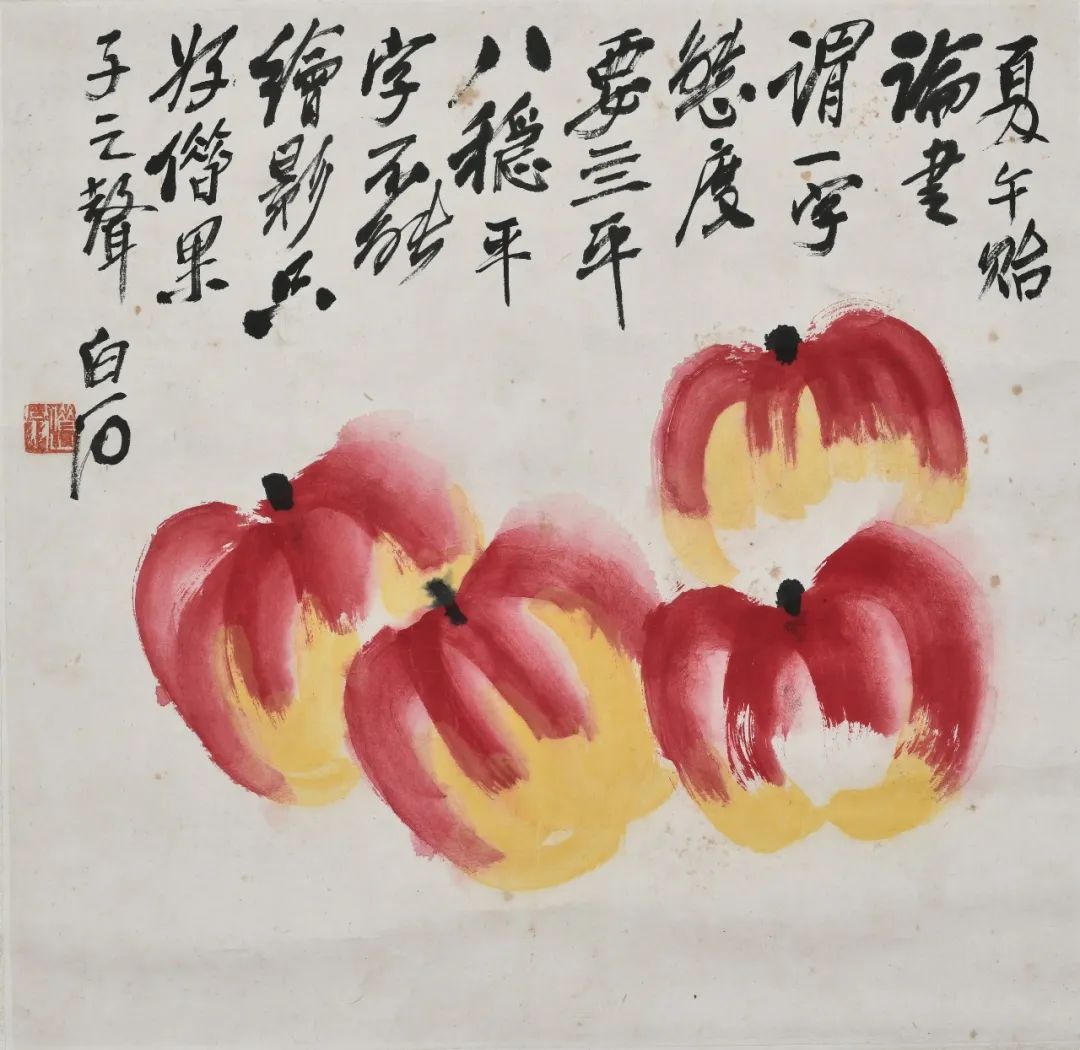 夏午貽
論書
謂一字
態度
要三平
八穩平
字不能
繪影只
好僭果
子之聲 白石